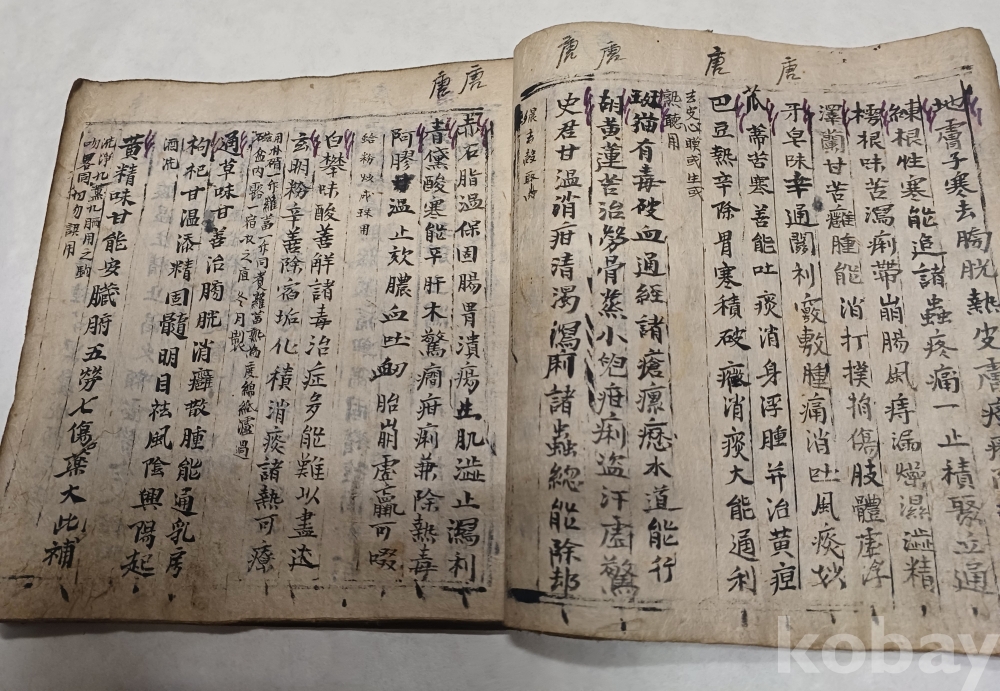 唐 唐 唐 唐
地膚子寒去膀胱熱皮膚
練根性寒能追諸蟲疼痛一止積聚立通
樗根味苦瀉痢帶崩腸風痔漏燥濕澁精
澤蘭甘苦癰腫能消打撲損傷肢體虛浮
牙皂味辛通關利竅敷腫痛消吐風痰妙
瓜蔕苦寒善能吐痰消身浮腫并治黃疸
巴豆熱辛除胃寒積破癥消痰大能通利
去皮心膜或生或
熟聽用
斑猫有毒破血通經諸瘡瘰癧水道能行
胡黃蓮苦治勞骨蒸小兒疳痢盜汗虛驚
史君甘溫消疳清濁瀉痢諸蟲總能除却
唐 唐
赤石脂溫保固腸胃潰瘍生肌澁止瀉利
靑黛酸寒能平肝木驚癎疳痢兼除熱毒
阿膠甘溫止咳膿血吐血胎崩虛羸可啜
蛤粉炒成珠用
白礬味酸善解諸毒治症多能難以盡述
玄明粉辛善除宿垢化積消痰諸熱可療
通草味甘善治膀胱消癰散腫能通乳房
枸杞甘溫添精固髓明目祛風陰興陽起
酒洗
黃精味甘能安臟腑五勞七傷此藥大補
kobay